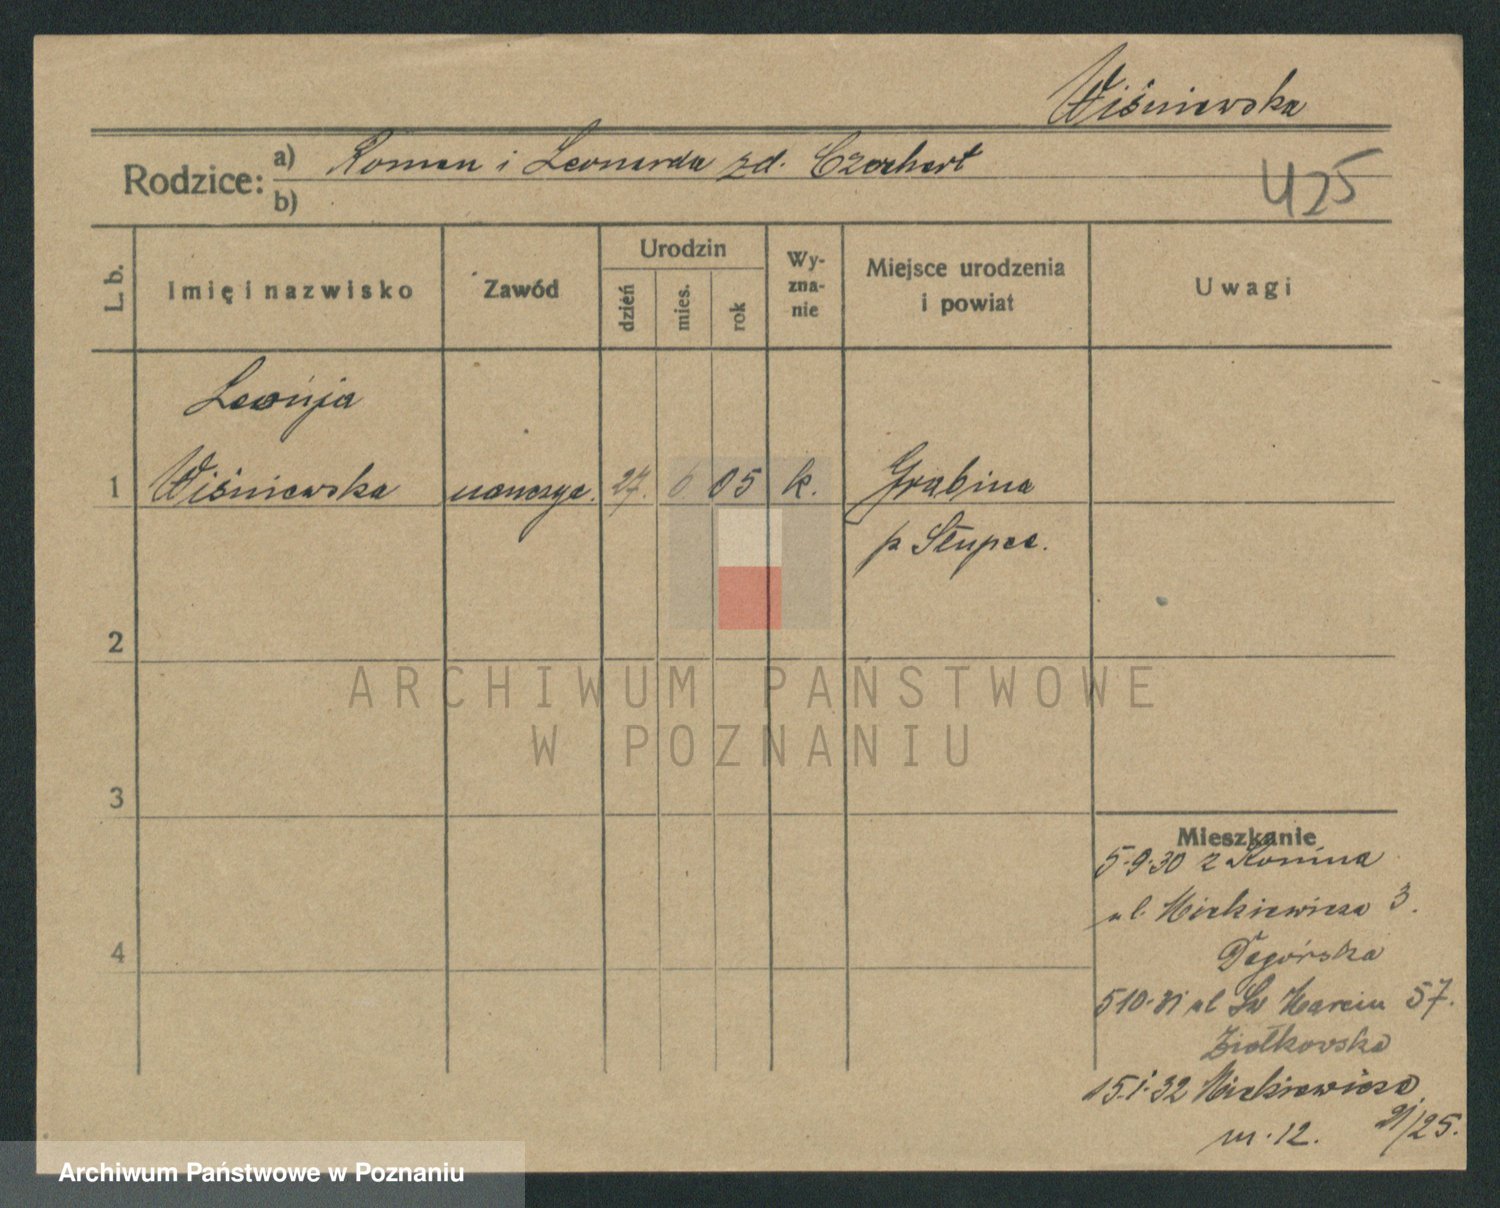 Wiśniewska
Rodzice: a) Roman i Leonarda zd. Czechert
b)
425
L. b.
Imię i nazwisko
Zawód
Urodzin
dzień
mies.
rok
Wy-
zna-
nie
Miejsce urodzenia
i powiat
Uwagi
Leonja
1 Wiśniewska nauczyc. 27. 6. 05 k. Grabina
p Słupca.
2
3
4
Mieszkanie
5.9.30 z Konina
ul. Mickiewicza 3.
5 10.31 ul Św Marcin 57.
Ziołkowska
15.1.32 Mickiewicza
21/25.
m. 12.
ARCHIWUM PAŃSTWOWE
W POZNANIU
Archiwum Państwowe w Poznaniu